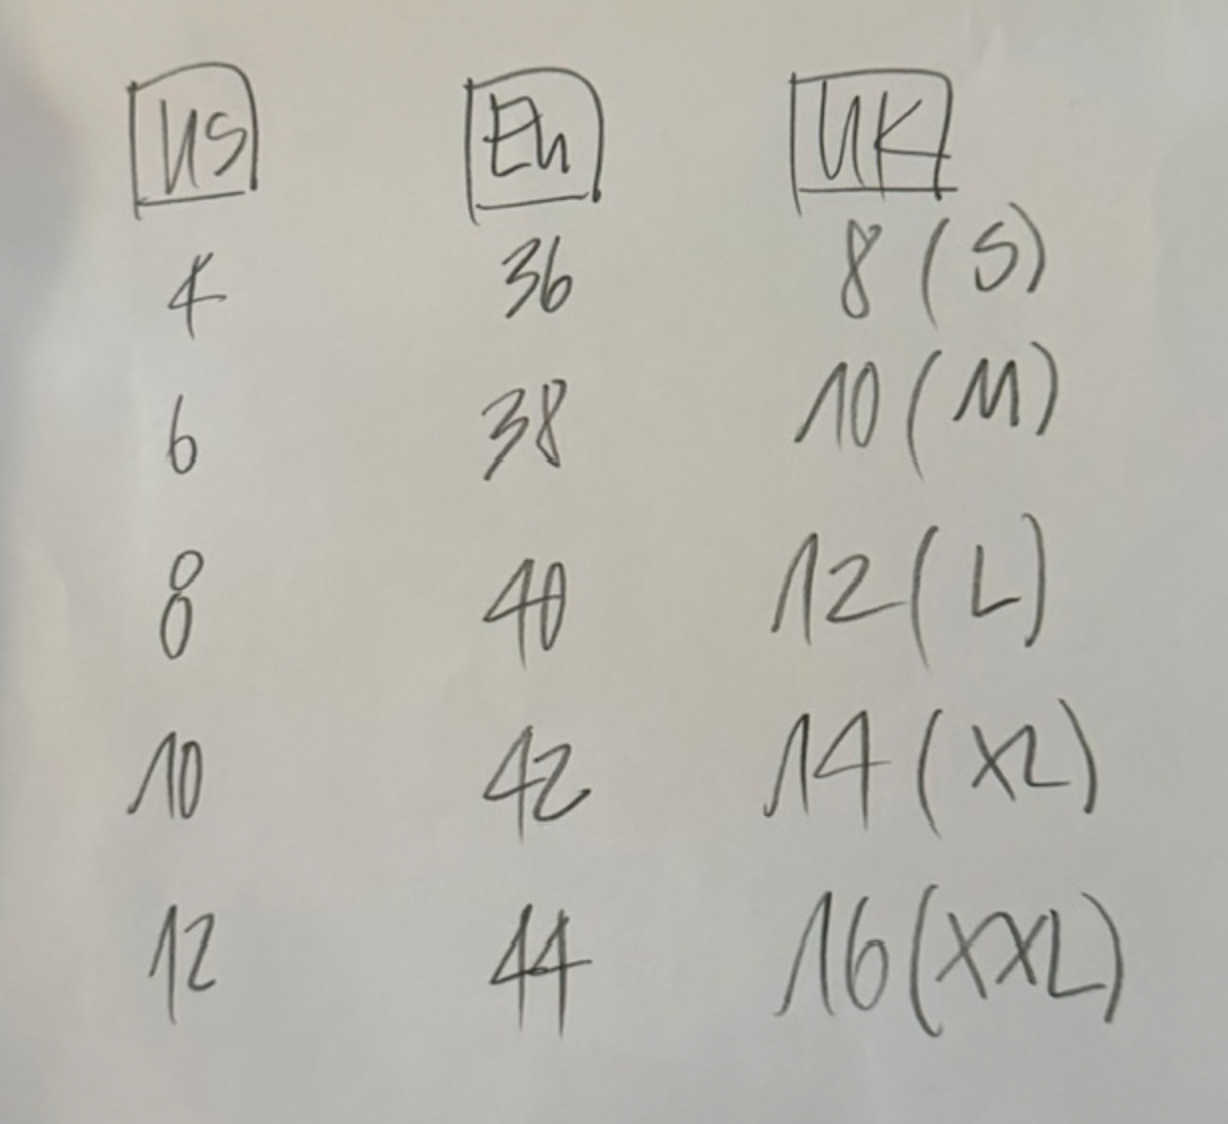 US EU UK
4 36 8 (S)
6 38 10 (M)
8 40 12 (L)
10 42 14 (XL)
12 44 16 (XXL)